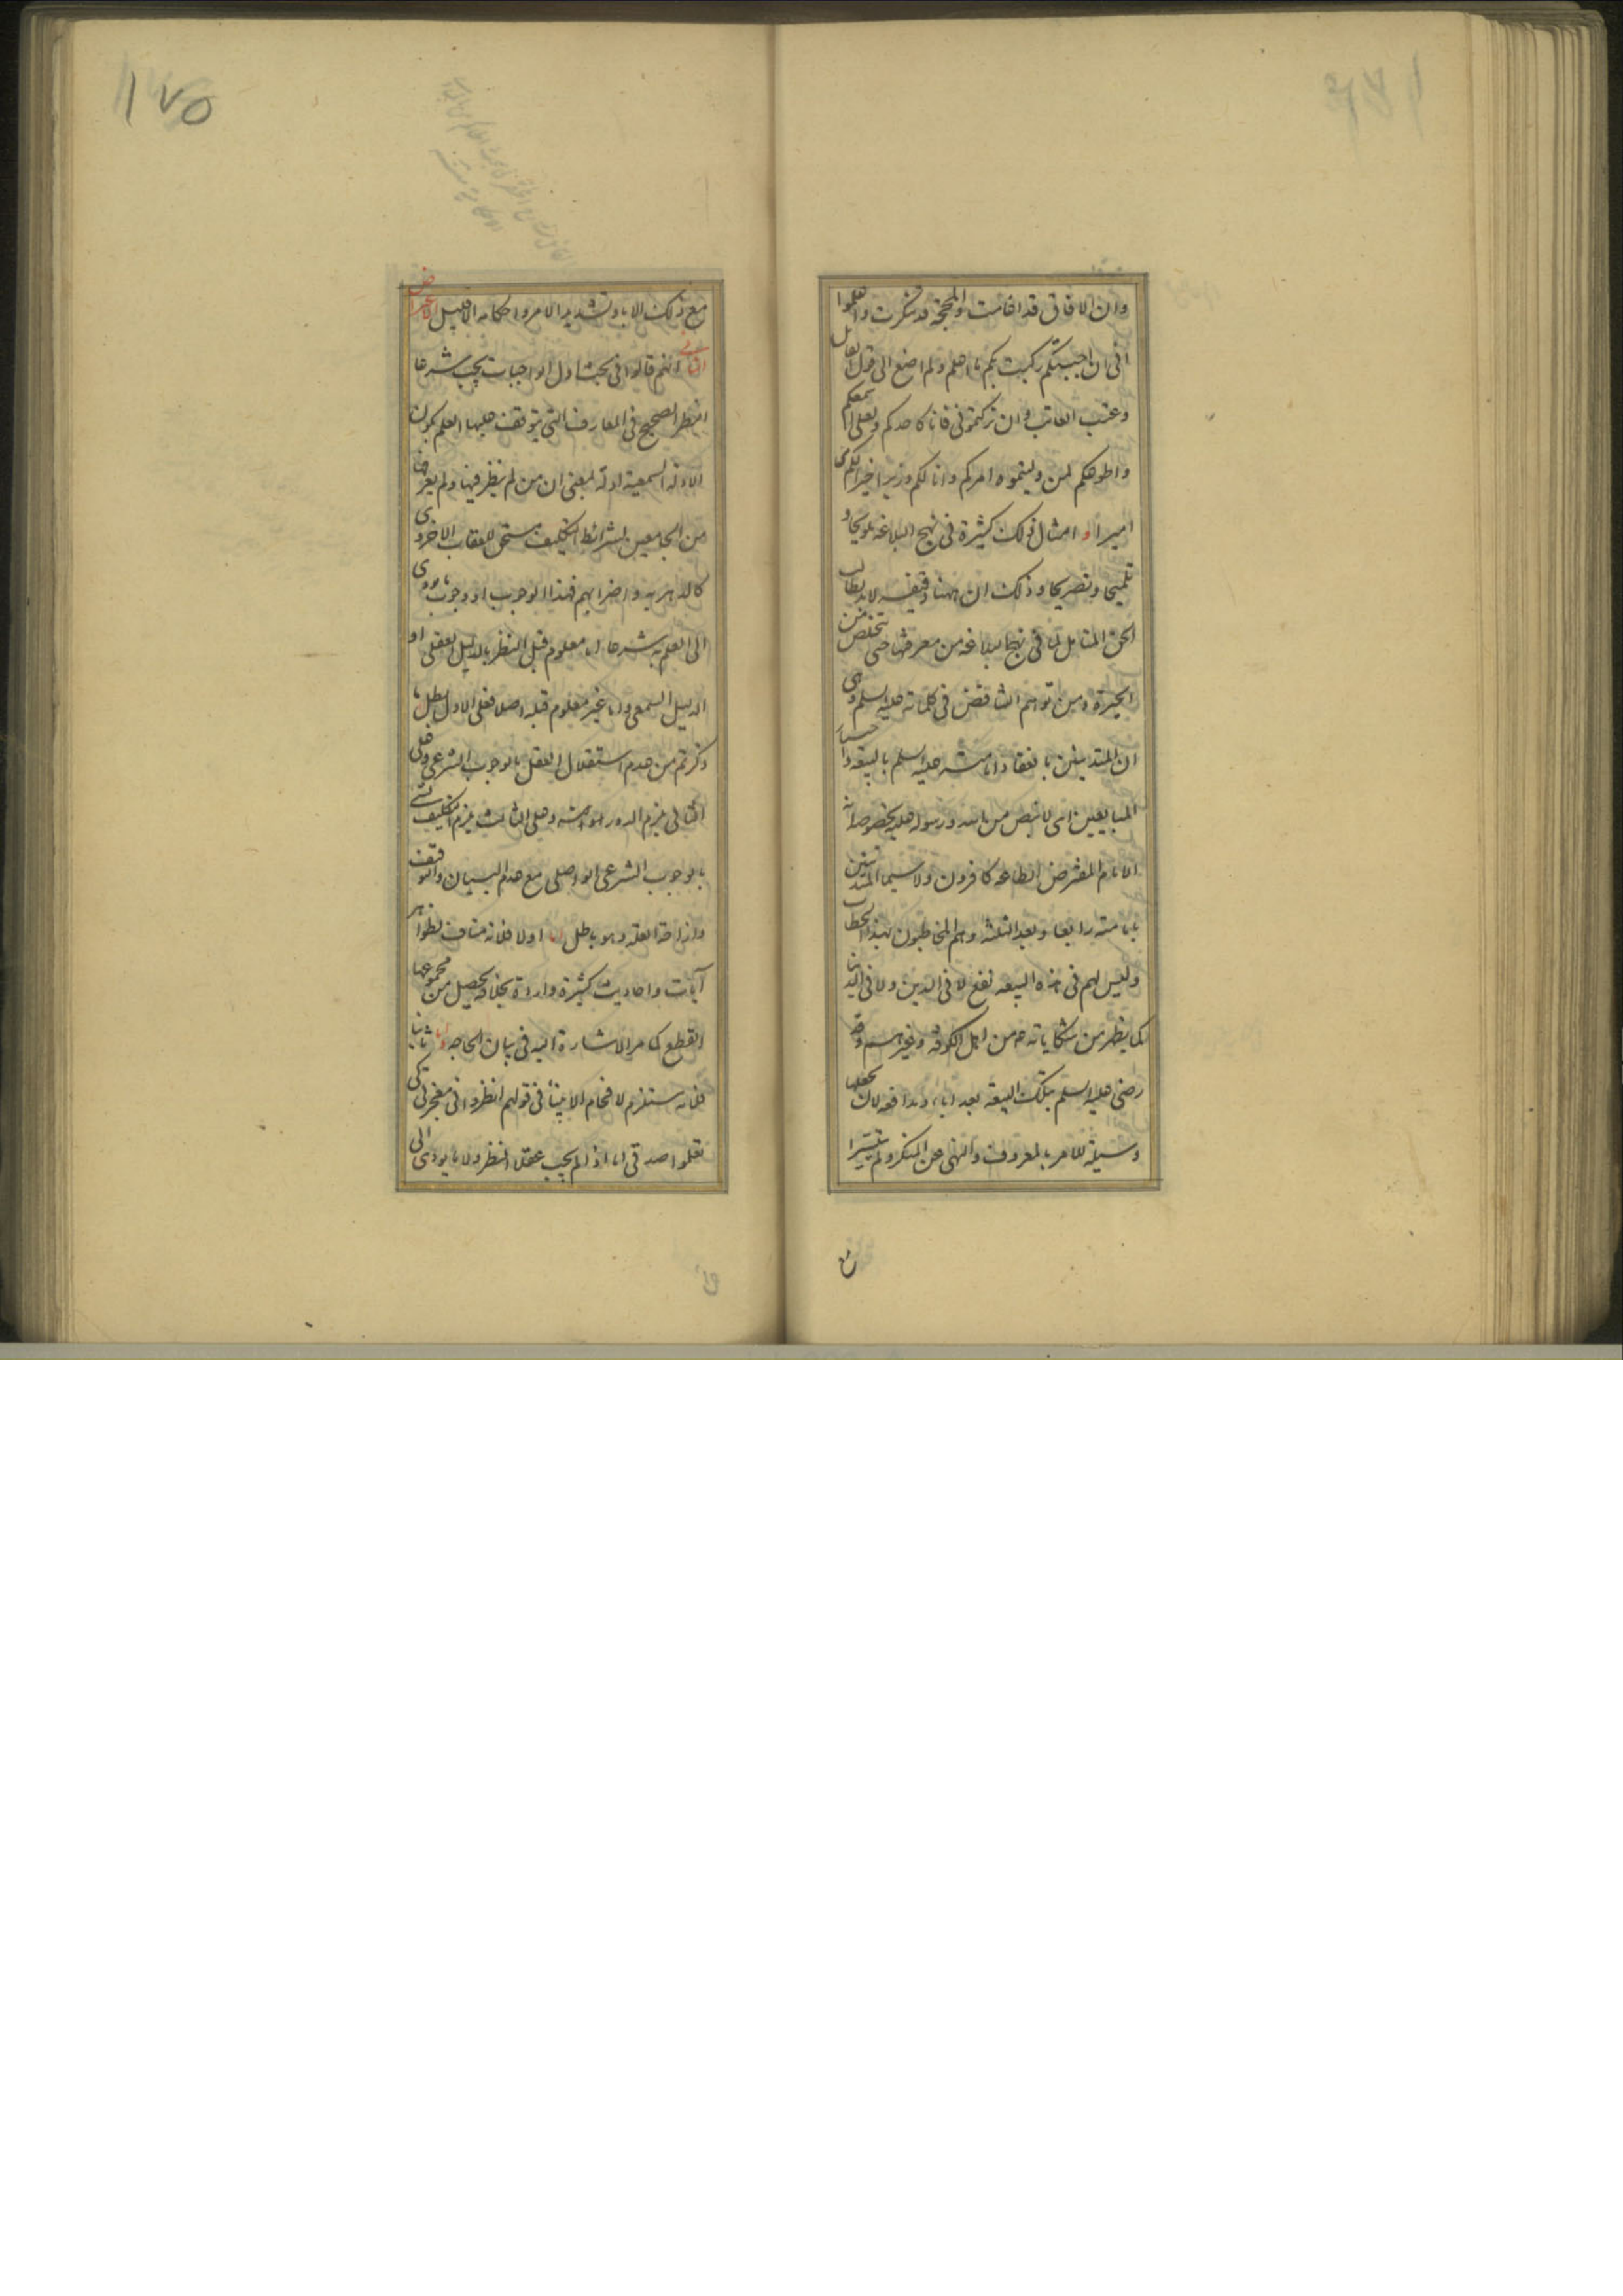 وان الافاق قد اغامت والمحجة قد تنكرت واعلموا
انى ان اجبتكم ركبت بكم ما اعلم ولم اصغ الى قول القائل
وعتب العاتب وان تركتمونى فانا كاحدكم ولعلى اسمعكم
واطوعكم لمن وليتموه امركم وانا لكم وزيرا خير لكم منى
اميرا و امثال ذلك كثيرة فى نهج البلاغه تلويحا و
تلميحا وتصريحا وذلك ان ههنا دقيقه لابد لطالب
الحق المتامل لما فى نهج البلاغه من معرفتها حتى يتخلص من
الحيرة ومن توهم التناقض فى كلماته عليه السلم وهى
ان المتدينين بانعقاد امامته عليه السلم بالبيعه و
المبايعين اى لا بنص من الله ورسوله عليه بخصوصه
الامام المفترض الطاعه كافرون ولا سيما المتدينين
بامامته رابعا وبعد الثلثه وهم المخاطبون بهذا الخطاب
وليس لهم فى هذه البيعه نفع لا فى الدين ولا فى الدنيا
كما يظهر من شكاياته من اهل الكوفه وغيرهم وقد
رضى عليه السلم بتلك البيعه بعد اباء ومدافعه لان يجعلها
وسيلة للامر بالمعروف والنهى عن المنكر ولم يتيسر
ن
١٧٥
مع ذلك الا باد وتشديد الامر واحكامه الا قليل
الثانى انهم قالوا فى بحث اول الواجبات يجب شرعا
النظر الصحيح فى المعارف التى يتوقف عليها العلم بكون
الادله السمعية ادلة بمعنى ان من لم ينظر فيها ولم يعرفها
من الجامعين لشرائط التكليف مستحق للعقاب الاخروى
كالدهريه واضرابهم فهذا الوجوب او وجوب ما يودى
الى العلم به شرعا اما معلوم قبل النظر بالدليل العقلى او
الدليل السمعى واما غير معلوم قبله اصلا فعلى الاول يبطل ما
ذكرتم من عدم استقلال العقل بالوجوب الشرعى وعلى
الثانى يلزم الدور وعلى الثالث يلزم التكليف
بالوجوب الشرعى الواصلى مع عدم البيان والتوقيف
وازاحة العله وهو باطل اما اولا فلانه مناف لظواهر
آيات واحاديث كثيرة واردة بخلافه يحصل من مجموعها
القطع كما مر الاشارة اليه فى بيان الحاجه واما ثانيا
فلانه يستلزم لافحام الانبياء فى قولهم انظروا فى معجزتى كى
تعلموا صدقى اما اذ لم يجب عقلا النظر ولا ما يودى الى